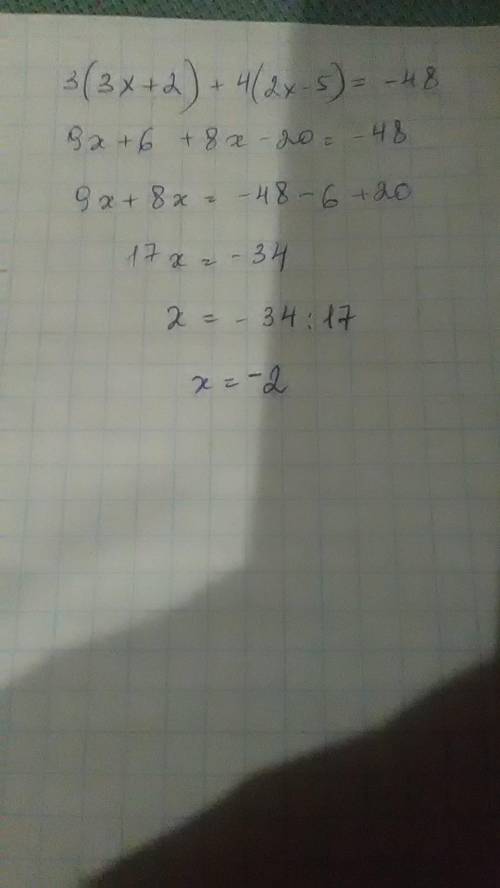 3(3x+2)+4(2x-5)=-48
9x+6+8x-20=-48
9x+8x=-48-6+20
17x=-34
x=-34:17
x=-2